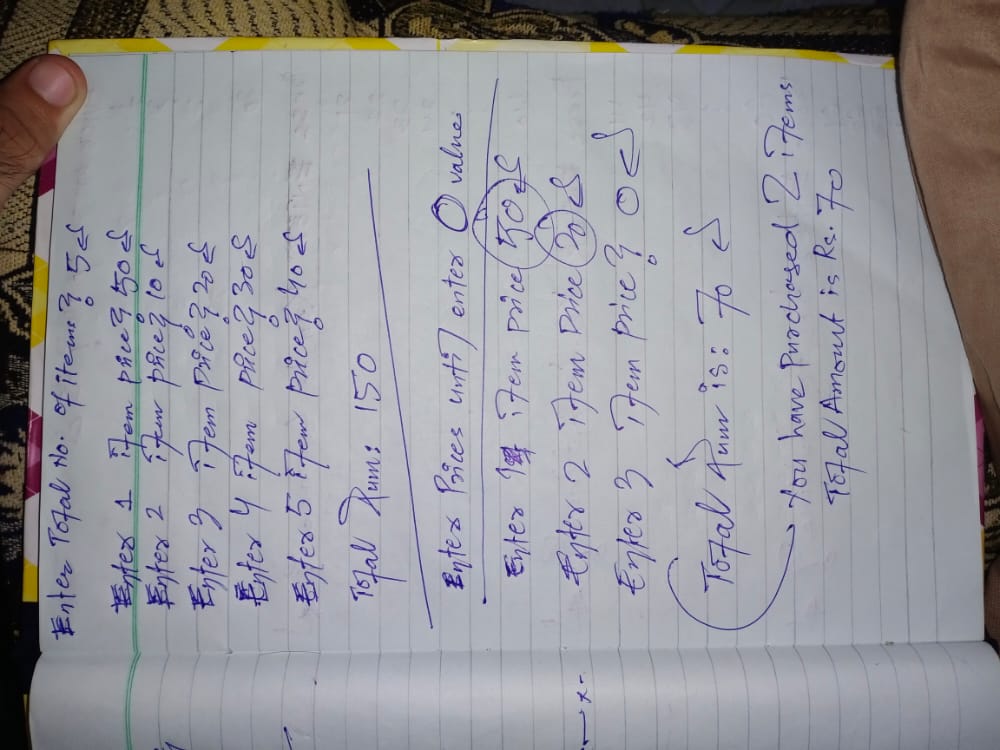 Enter Total No. of items? 5
Enter 1 item price? 50
Enter 2 item price? 10
Enter 3 item price? 20
Enter 4 item price? 30
Enter 5 item price? 40
Total Sum: 150
Enter Prices until enter 0 value
Enter 1 item price 50
Enter 2 item price 20
Enter 3 item price? 0
Total Sum is: 70
You have purchased 2 items
Total Amount is Rs. 70